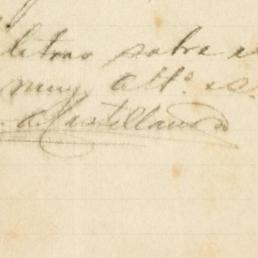 letras sobre e
muy att.º s.
a. Castellanos